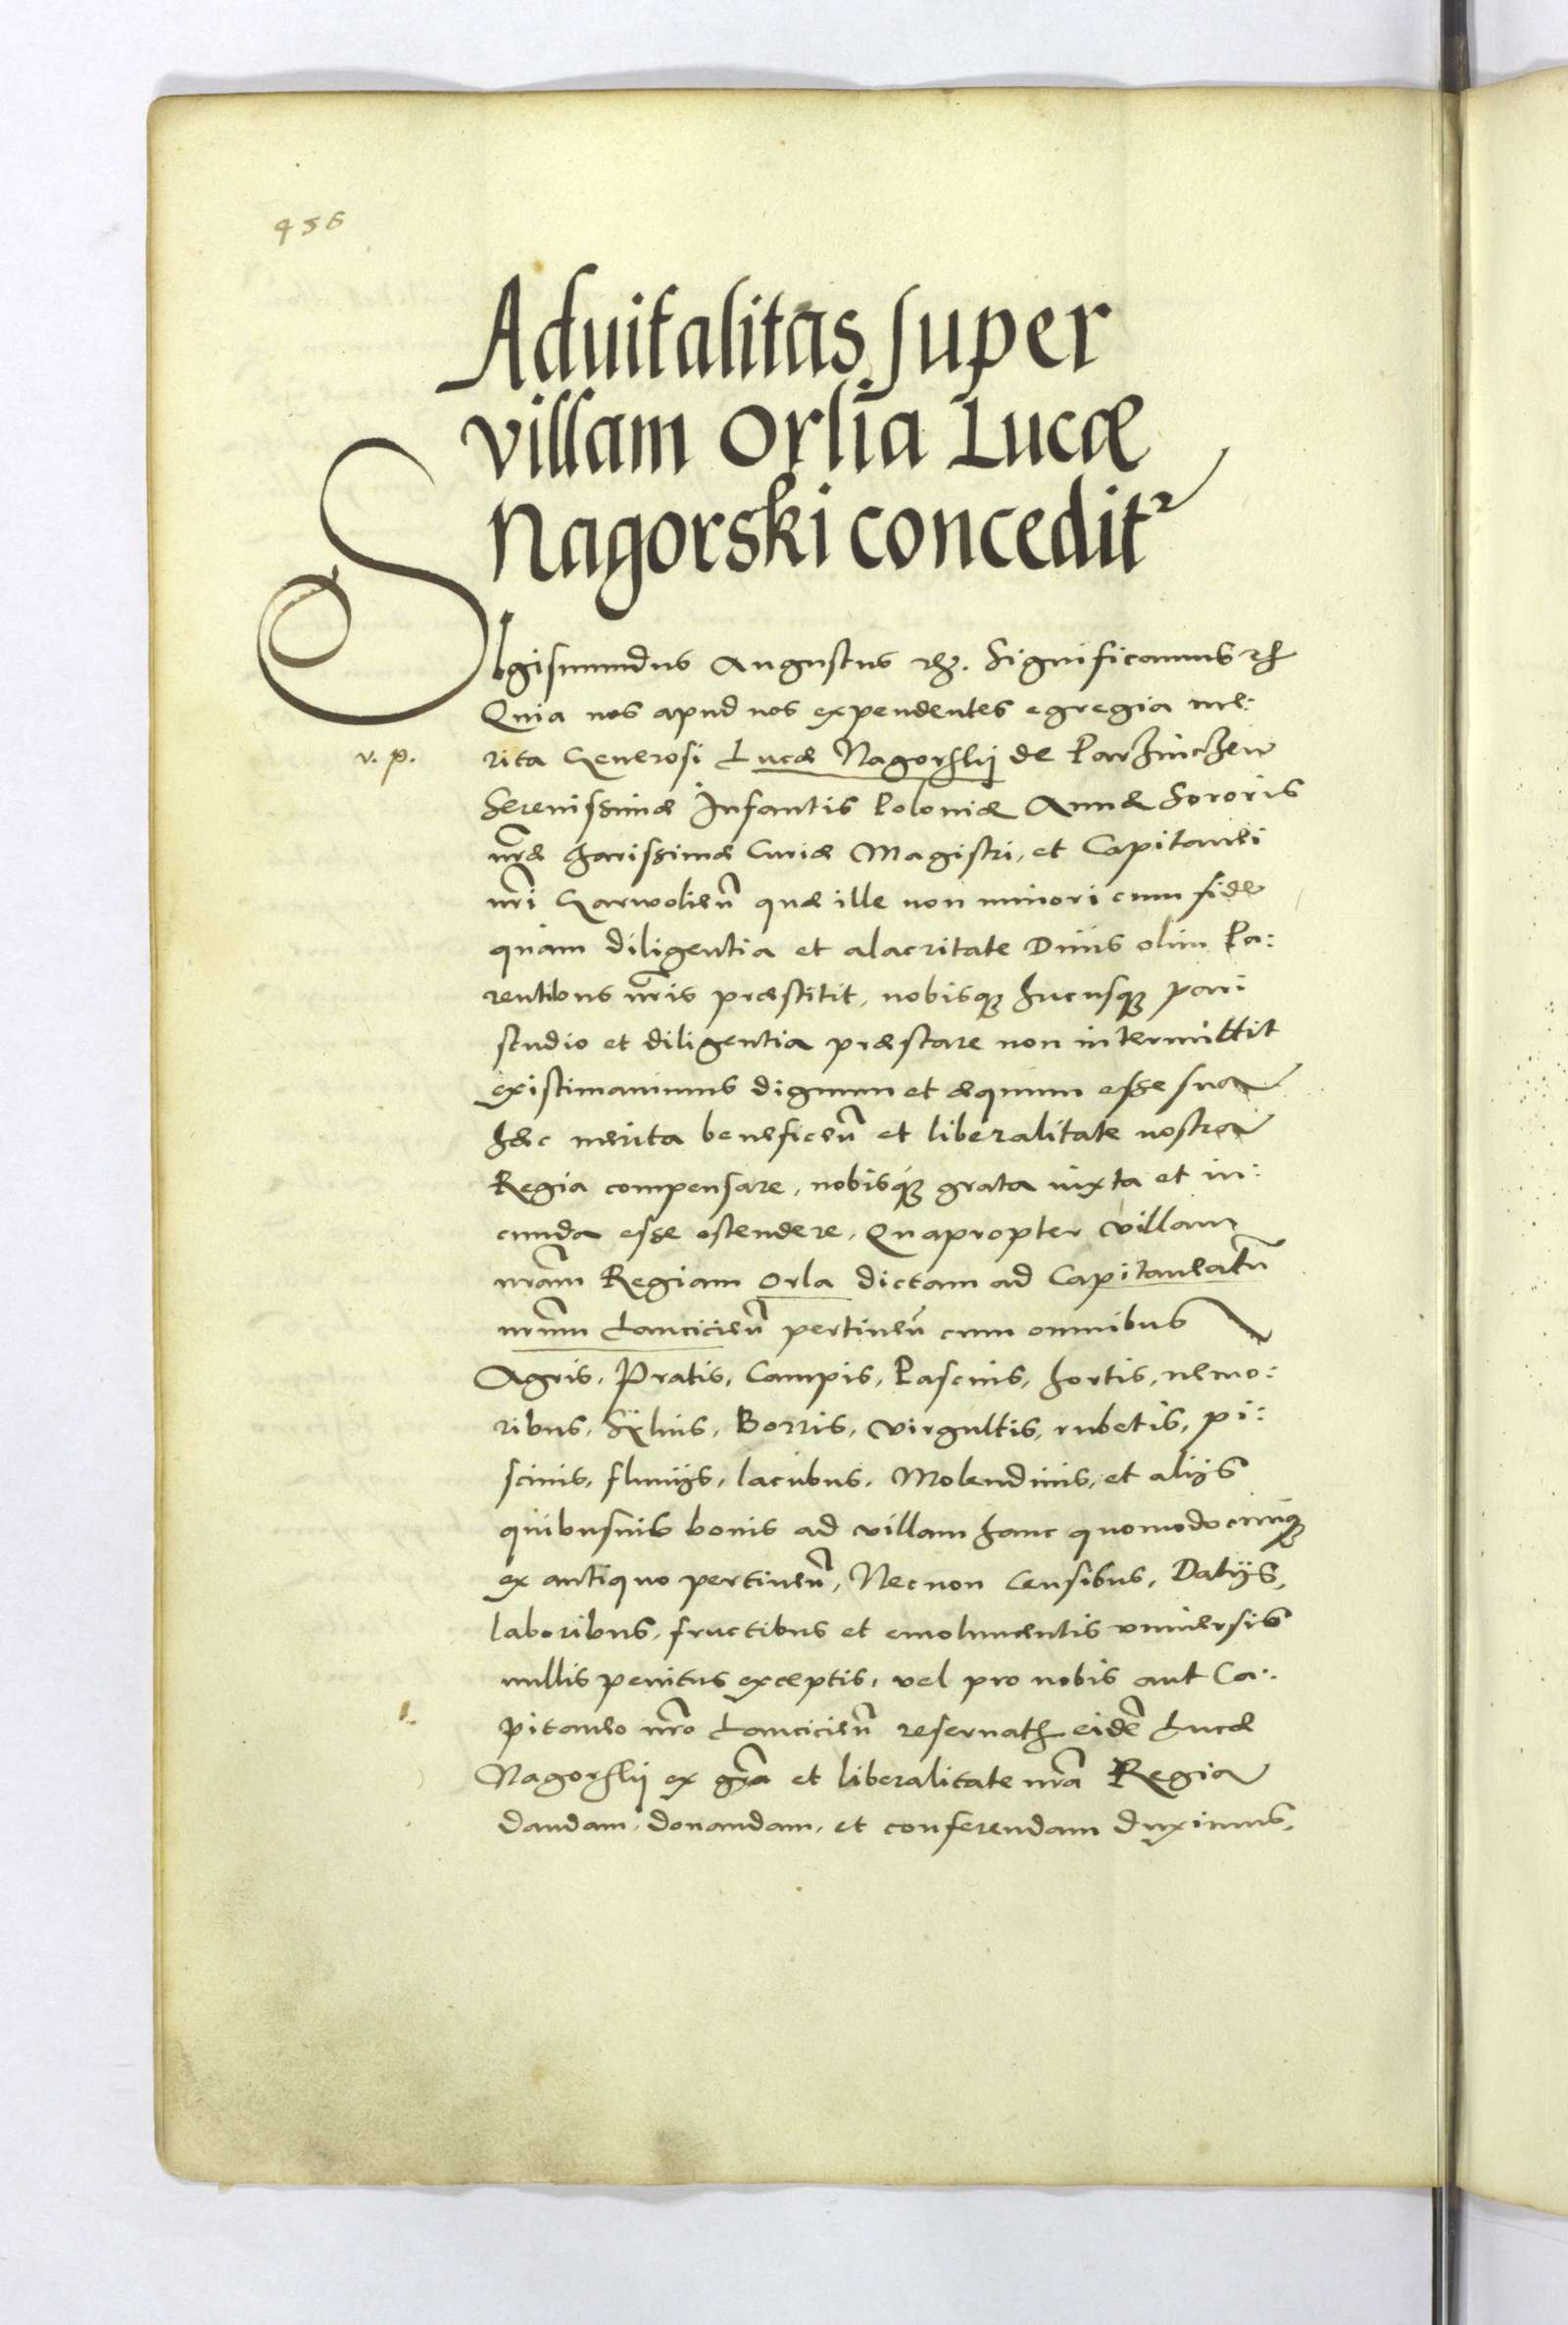 456
Advitalitas super
villam Orlia Lucæ
Nagorski concedit²
Sigismundus Augustus etc. Significamus etc
Quia nos apud nos expendentes egregia me:
v. p.
rita Generosi Lucæ Nagorskij de Parzinczew
Serenissimæ Infantis Poloniæ Annæ Sororis
nr̄æ charissimæ Curiæ Magistri, et Capitanei
nr̄i Garwolien̄ quæ ille non minori cum fide
quam diligentia et alacritate Diuis olim Pa:
rentibus nr̄is præstitit, nobisq3 hucusq3 pari
studio et diligentia præstare non intermittit
existimauimus dignum et æquum esse sua
hæc merita beneficen̄ et liberalitate nostra
Regia compensare, nobisq3 grata iuxta et iu:
cunda esse ostendere, Quapropter villam
nr̄am Regiam Orla dictam ad Capitaneatū
nr̄um Lancicien̄ pertinen̄ cum omnibus
Agris, Pratis, Campis, Pascuis, hortis, nemo:
ribus, Sÿluis, Borris, virgultis, rubetis, pi:
scinis, fluuijs, lacubus, Molendinis, et alijs
quibusuis bonis ad villam hanc quomodocunq3
ex antiquo pertinen̄, Necnon Censibus, Datijs,
laboribus, fructibus et emolumentis vniuersis
nullis penitus exceptis, vel pro nobis aut Ca:
pitaneo nr̄o Lancicien̄ reseruatis eidē Lucæ
Nagorskij ex gr̄a et liberalitate nr̄a Regia
dandam, donandam, et conferendam duximus,